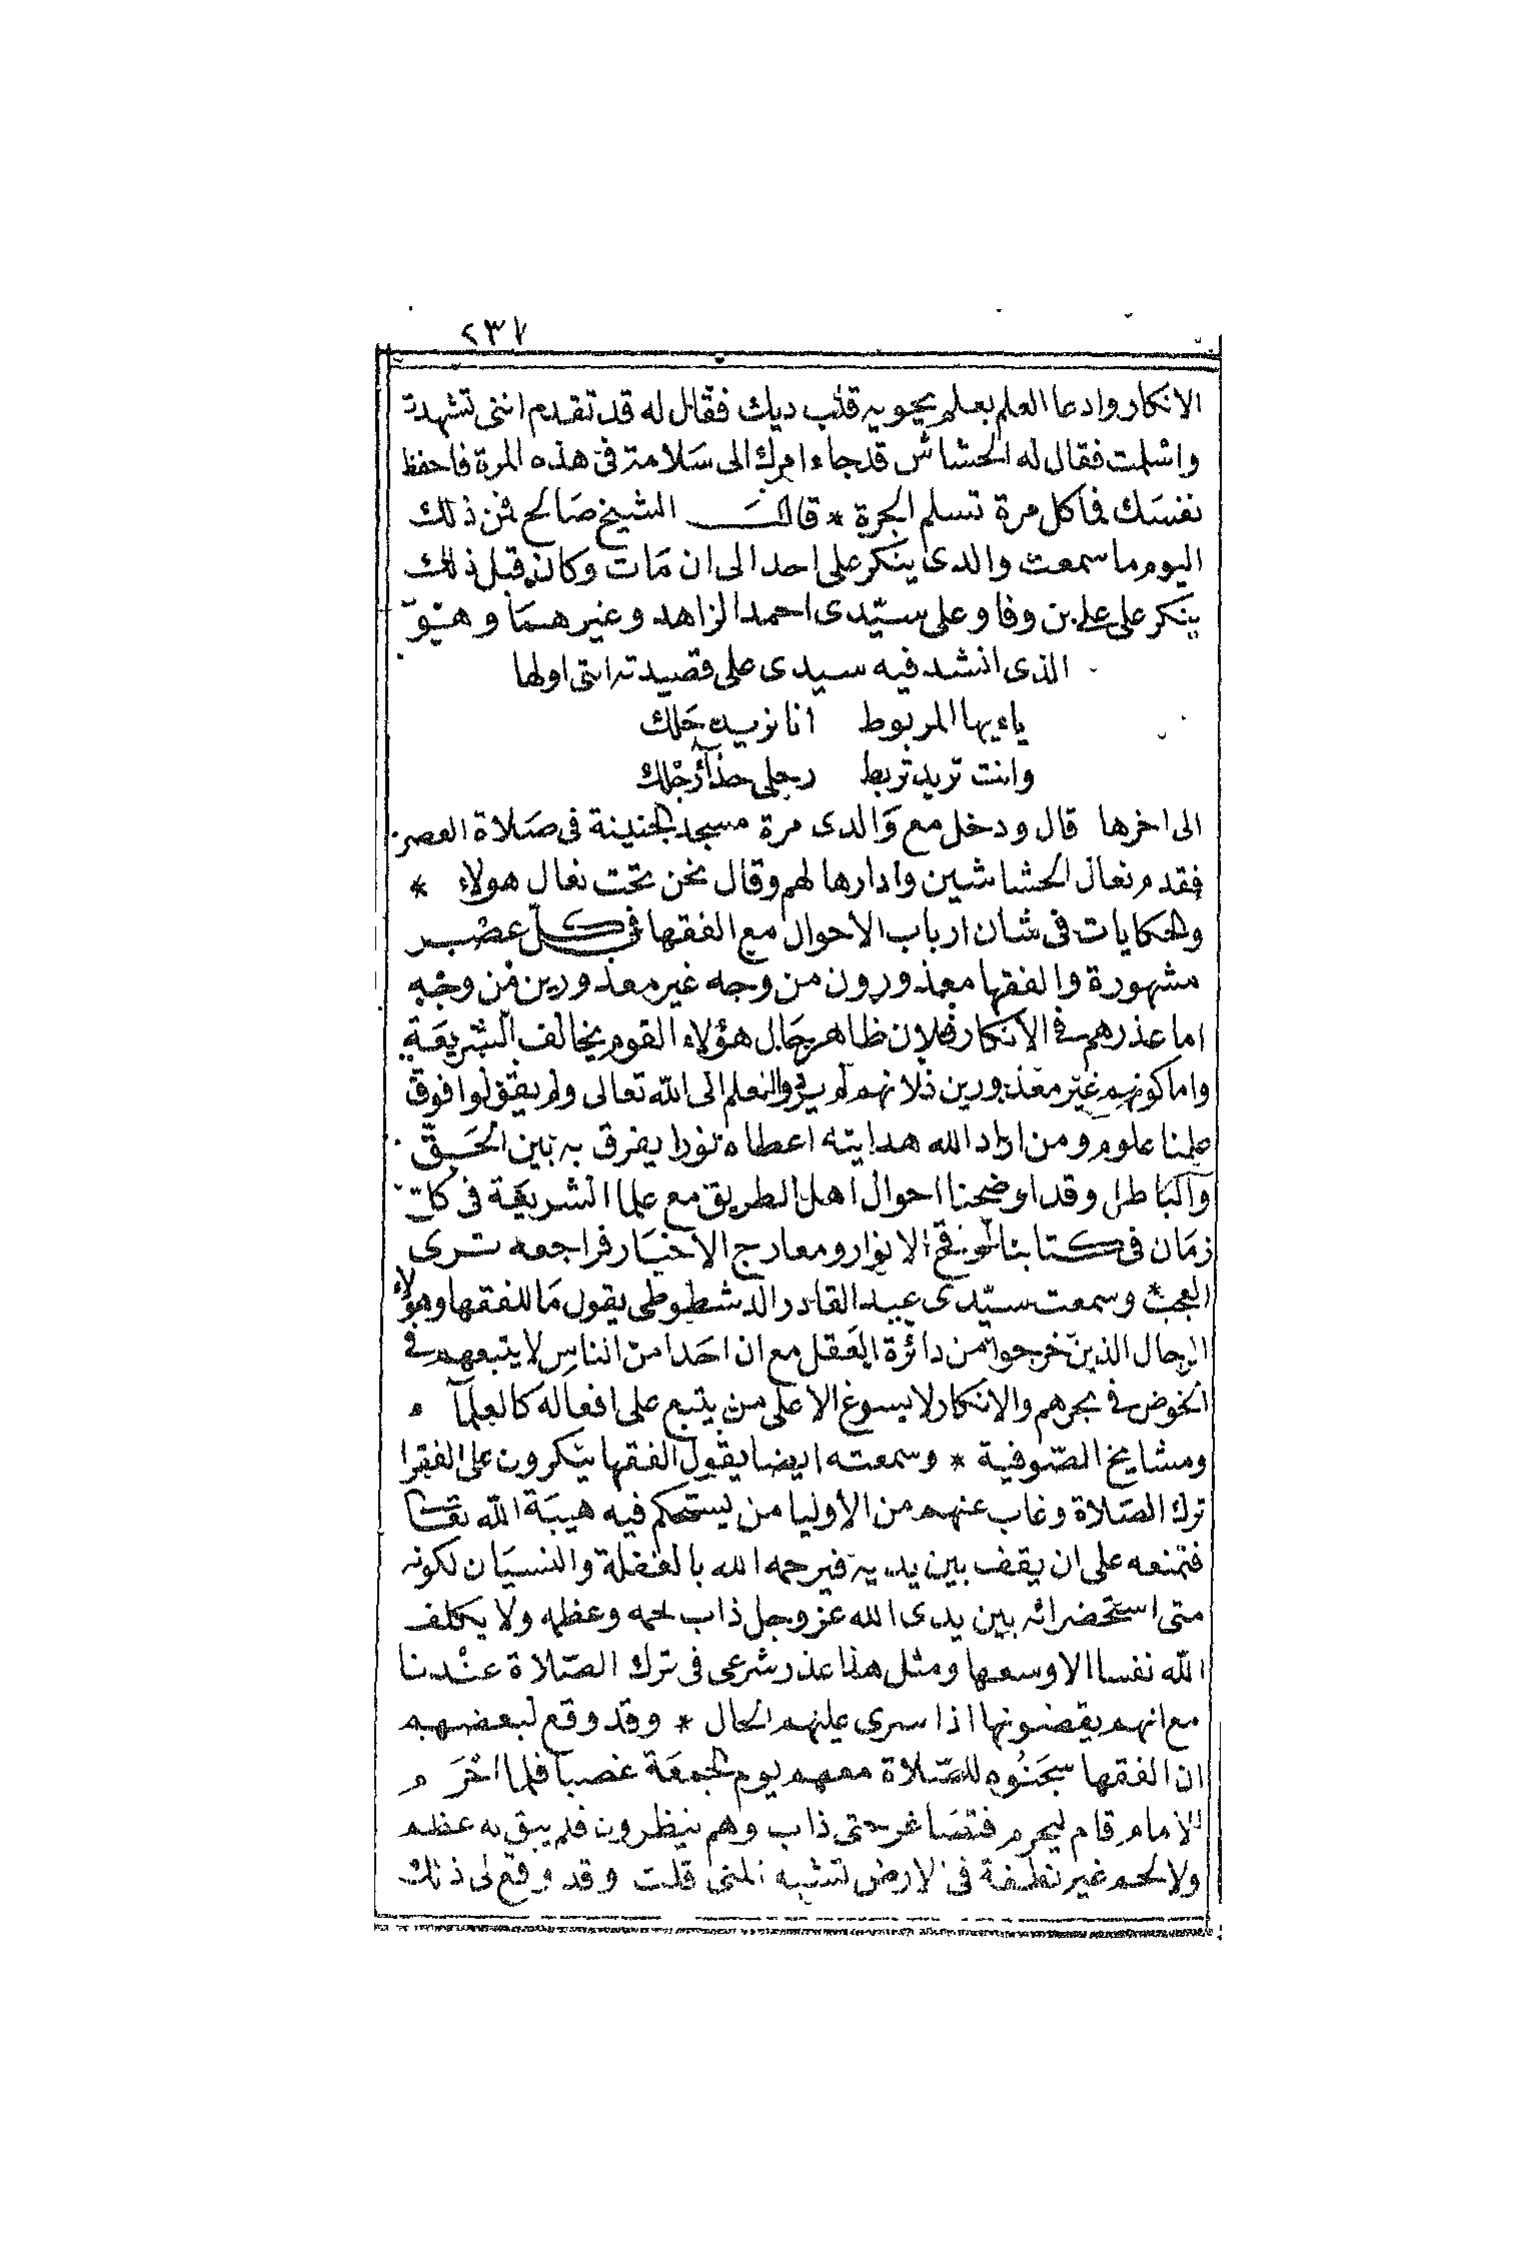 ٢٣٧
الانكار وادعا العلم بعلم يحويه قلب ديك فقال له قد تقدم اننى تشهدت
واسلمت فقال له الحشاش قد جاء امرك الى سلامة فى هذه المرة فاحفظ
نفسك فما كل مرة تسلم الجرة * قال الشيخ صالح فمن ذلك
اليوم ما سمعت والدى ينكر على احد الى ان مات وكان قبل ذلك
ينكر على على بن وفا وعلى سيّدى احمد الزاهد وغيرهما وهو
الذى انشد فيه سيدى على قصيدته التى اولها
ياءيها المربوط انا نريد حلك
وانت تريد تربط رجلى حذا رجلك
الى اخرها قال ودخل مع والدى مرة مسجد الجنينة فى صلاة العصر
فقدم نعال الحشاشين وادارها لهم وقال نحن تحت نعال هولاء *
والحكايات فى شان ارباب الاحوال مع الفقها فى كل عصر
مشهورة والفقها معذورون من وجه غير معذورين من وجه
اما عذرهم فى الانكار فلان ظاهر حال هؤلاء القوم يخالف الشريعة
واما كونهم غير معذورين فلانهم لم يردوا العلم الى الله تعالى ولم يقولوا فوق
علمنا علوم ومن اراد الله هدايته اعطاه نورا يفرق به بين الحق
والباطل وقد اوضحنا احوال اهل الطريق مع علما الشريعة فى كل
زمان فى كتابنا الانوار ومعارج الاخيار فراجعه ترى
العجب * وسمعت سيّدى عبد القادر الدشطوطى يقول ما للفقها وهولاء
الرجال الذين خرجوا من دائرة العقل مع ان احدا من الناس لا يتبعهم فى
الخوض فى بحرهم والانكار لا يسوغ الا على من يتبع على افعاله كالعلما
ومشايخ الصوفية * وسمعته ايضا يقول الفقها ينكرون على الفقرا
ترك الصلاة وغاب عنهم من الاوليا من يستحكم فيه هيبة الله تعالى
فتمنعه على ان يقف بين يديه فيرحمه الله بالغفلة والنسيان لكونه
متى استحضر انه بين يدى الله عز وجل ذاب لحمه وعظمه ولا يكلف
الله نفسا الا وسعها ومثل هذا عذر شرعى فى ترك الصلاة عندنا
مع انهم يقضونها اذا سرى عليهم الحال * وقد وقع لبعضهم
ان الفقها سجنوه للصلاة معهم يوم الجمعة غصبا فلما احرم
الامام قام ليحرم فتصاغر حتى ذاب وهم ينظرون فلم يبق به عظم
ولا لحم غير نطفة فى الارض تشبه المنى قلت وقد وقع لى ذلك